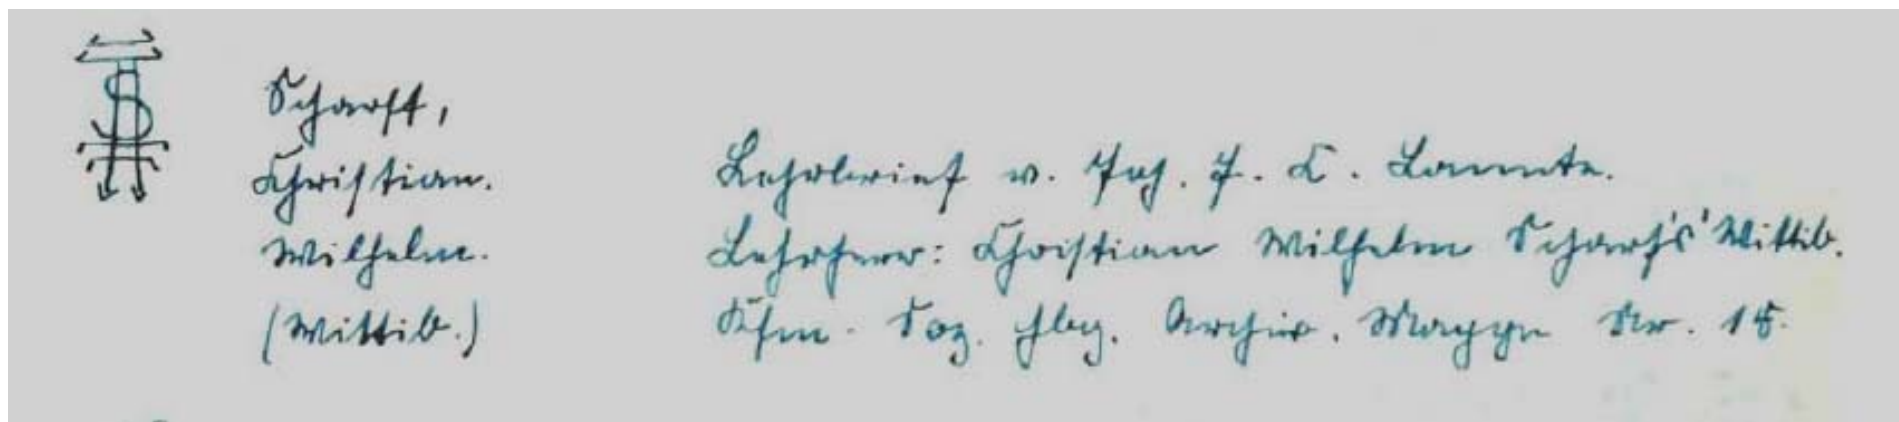 Scharff,
Christian.
Wilhelm.
(Wittib.)
Lehrbrief v. Joh. F. C. Lammte.
Lehrherr: Christian Wilhelm Scharf's' Wittib.
Kfm. Soz. Hbg. Archiv. Mappe Nr. 18.